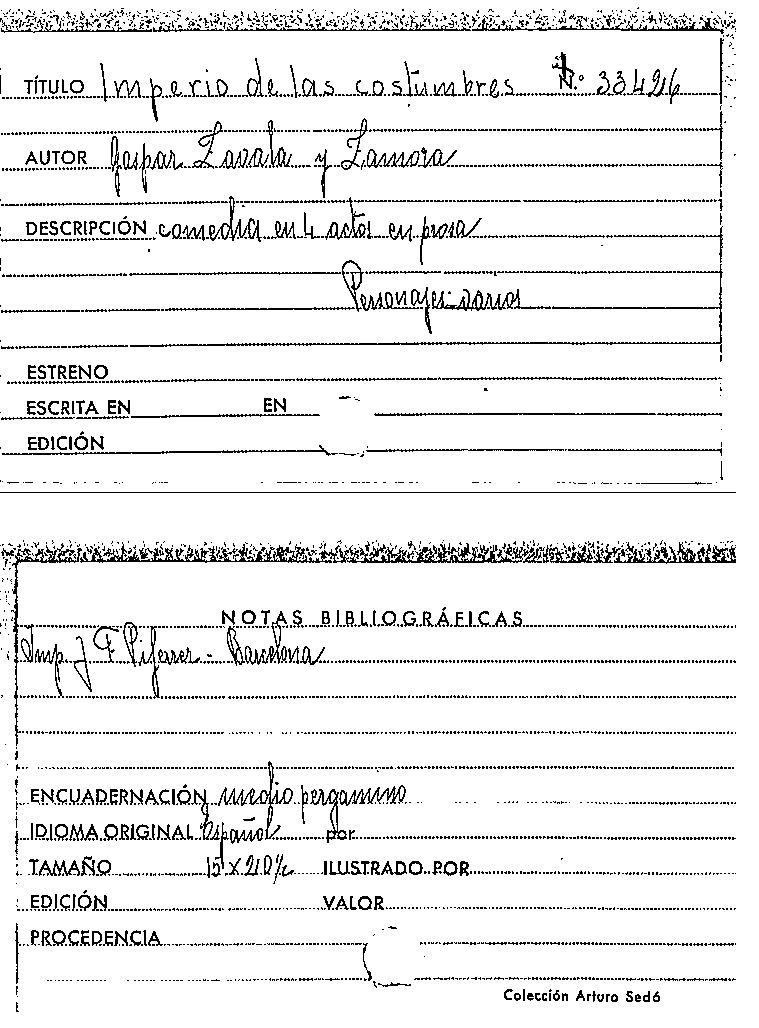 TÍTULO Imperio de las costumbres N.º 33426
AUTOR Gaspar Zavala y Zamora
DESCRIPCIÓN comedia en 4 actos en prosa
Personajes varios
ESTRENO
ESCRITA EN EN
EDICIÓN
NOTAS BIBLIOGRÁFICAS
Imp. J F Piferrer - Barcelona
ENCUADERNACIÓN medio pergamino
IDIOMA ORIGINAL Español por
TAMAÑO 15 x 20½ ILUSTRADO POR
EDICIÓN VALOR
PROCEDENCIA
Colección Arturo Sedó